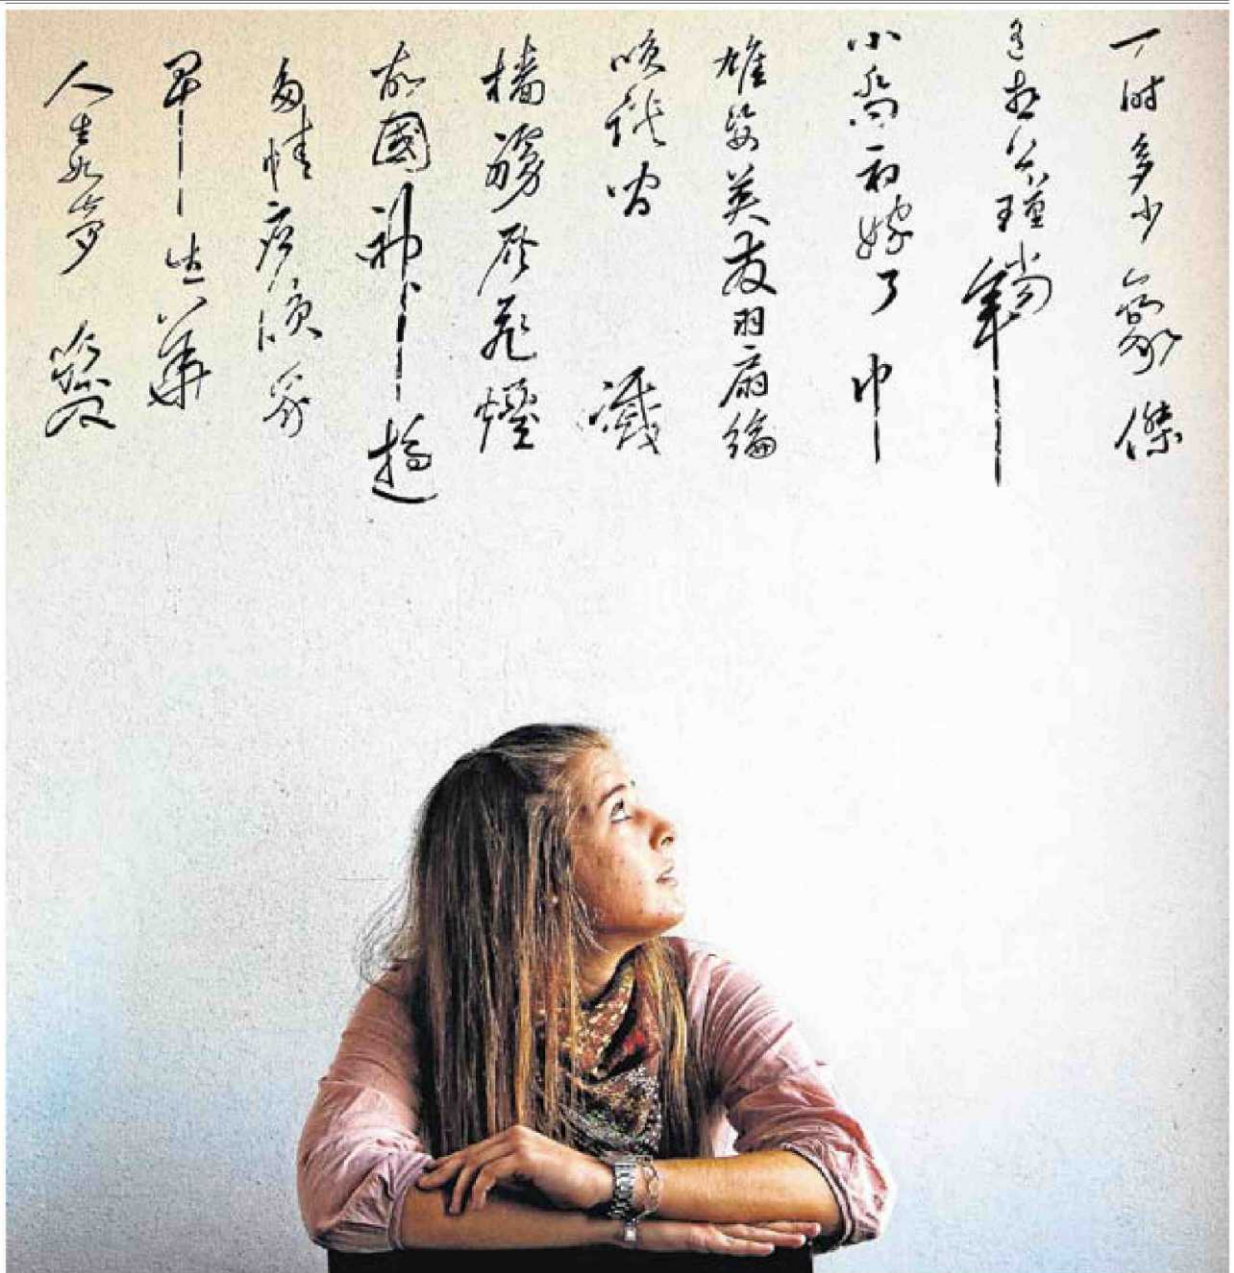 一时多少豪傑
遙想公瑾當年
小喬初嫁了 巾
雄姿英發羽扇綸
咲談間 滅
檣艣灰飛煙
故國神遊
多情應咲我
早生華
人生如夢 髮